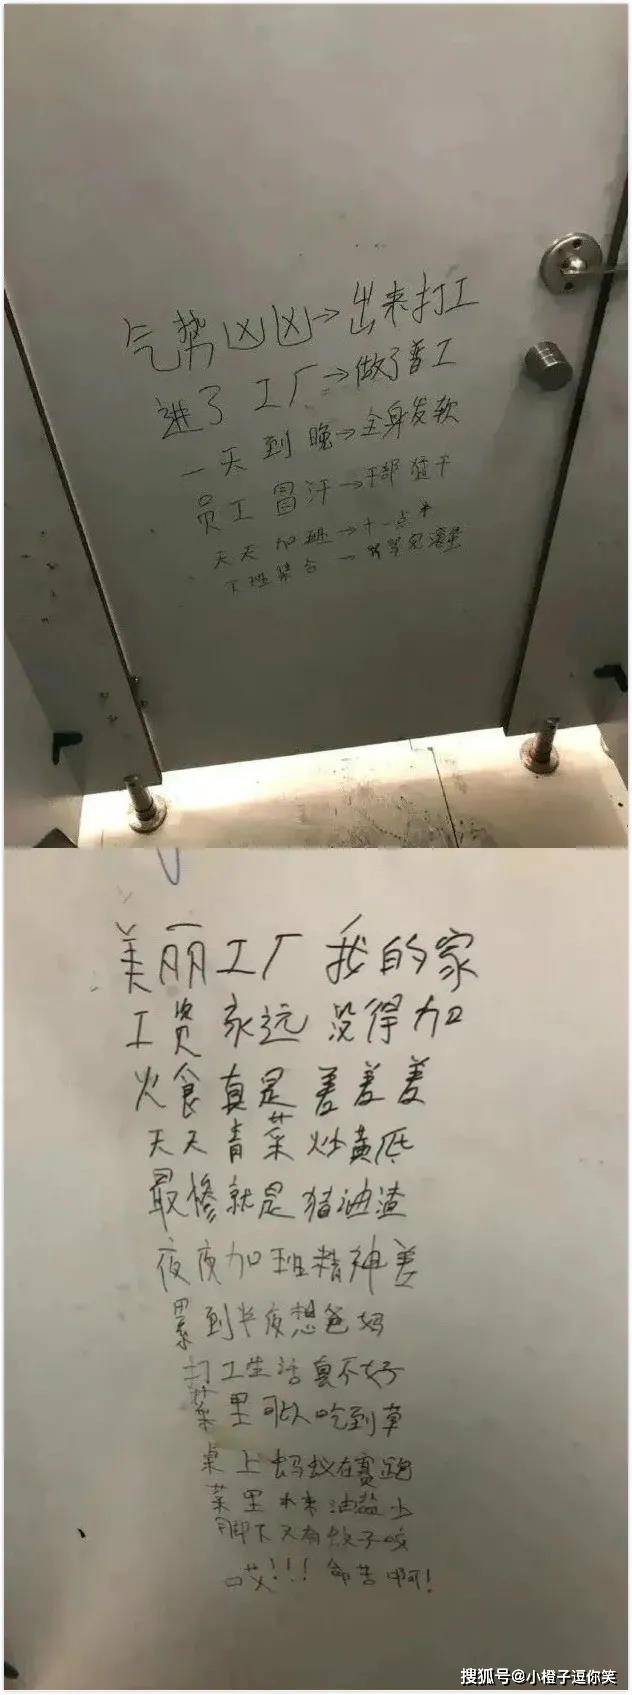 气势凶凶→出来打工
进了工厂→做了普工
一天到晚→全身发软
员工冒汗→干部猛干
天天加班→十一点半
下班集合一
美丽工厂 我的家
工资永远没得加
火食真是差差差
天天青菜炒黄瓜
最惨就是猪油渣
夜夜加班精神差
累到半夜想爸妈
打工生活真不好
菜里可以吃到草
桌上蚂蚁在赛跑
菜里本来油盐少
脚下又有蚊子咬
哎!!! 命苦啊!
搜狐号@小橙子逗你笑